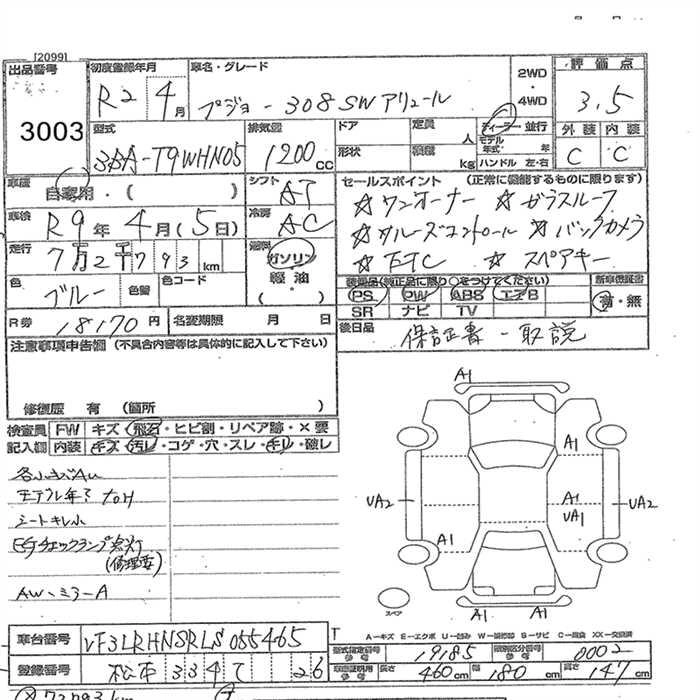 [2099]
出品番号
3003
初度登録年月
R2 4月
車名・グレード
プジョー 308SWアリュール
2WD
4WD
評価点
3.5
外装 内装
C C
型式
3BA-T9WHN05
排気量
1200cc
ドア
定員
人
形状
積載
kg
ディーラー・並行
モデル年式 年
ハンドル 左・右
車歴
自家用・( )
シフト
AT
車検
R9年4月(5日)
冷房
AC
走行
7万2千793km
燃料
ガソリン
軽油
( ・ )
色
ブルー
色替
色コード
R券
18170円
名変期限 月 日
セールスポイント (正常に機能するものに限ります)
☆ワンオーナー ☆ガラスルーフ
☆クルーズコントロール ☆バックカメラ
☆ETC ☆スペアキー
装備品(純正品に限り○をつけてください)
PS PW ABS エアB
SR ナビ TV
新車保証書
有・無
後日品
保証書-取説
注意事項申告欄 (不具合内容等は具体的に記入して下さい)
修復歴 有 (箇所 )
検査員記入欄
FW キズ・飛石・ヒビ割・リペア跡・×要
内装 キズ・汚レ・コゲ・穴・スレ・キレ・破レ
シートキレ小
EGチェックランプ点灯
(修理要)
AW・ミラーA
A1
A1
A1
UA2
UA1
UA2
A1
A1 A1
スペア
A-キズ E-エクボ U-凹み W-補修跡 S-サビ C-腐食 XX-交換済
車台番号
VF3LRHNSRLS055465
登録番号
松本 334 て 26
型式指定番号 参考
19185
類別区分番号 参考
0002
車検証明用 参考
長さ 460cm 幅 180cm 高さ 147cm